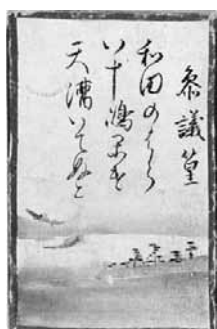 参議篁
和田のはら
八十嶋かけ
天漕いてぬと